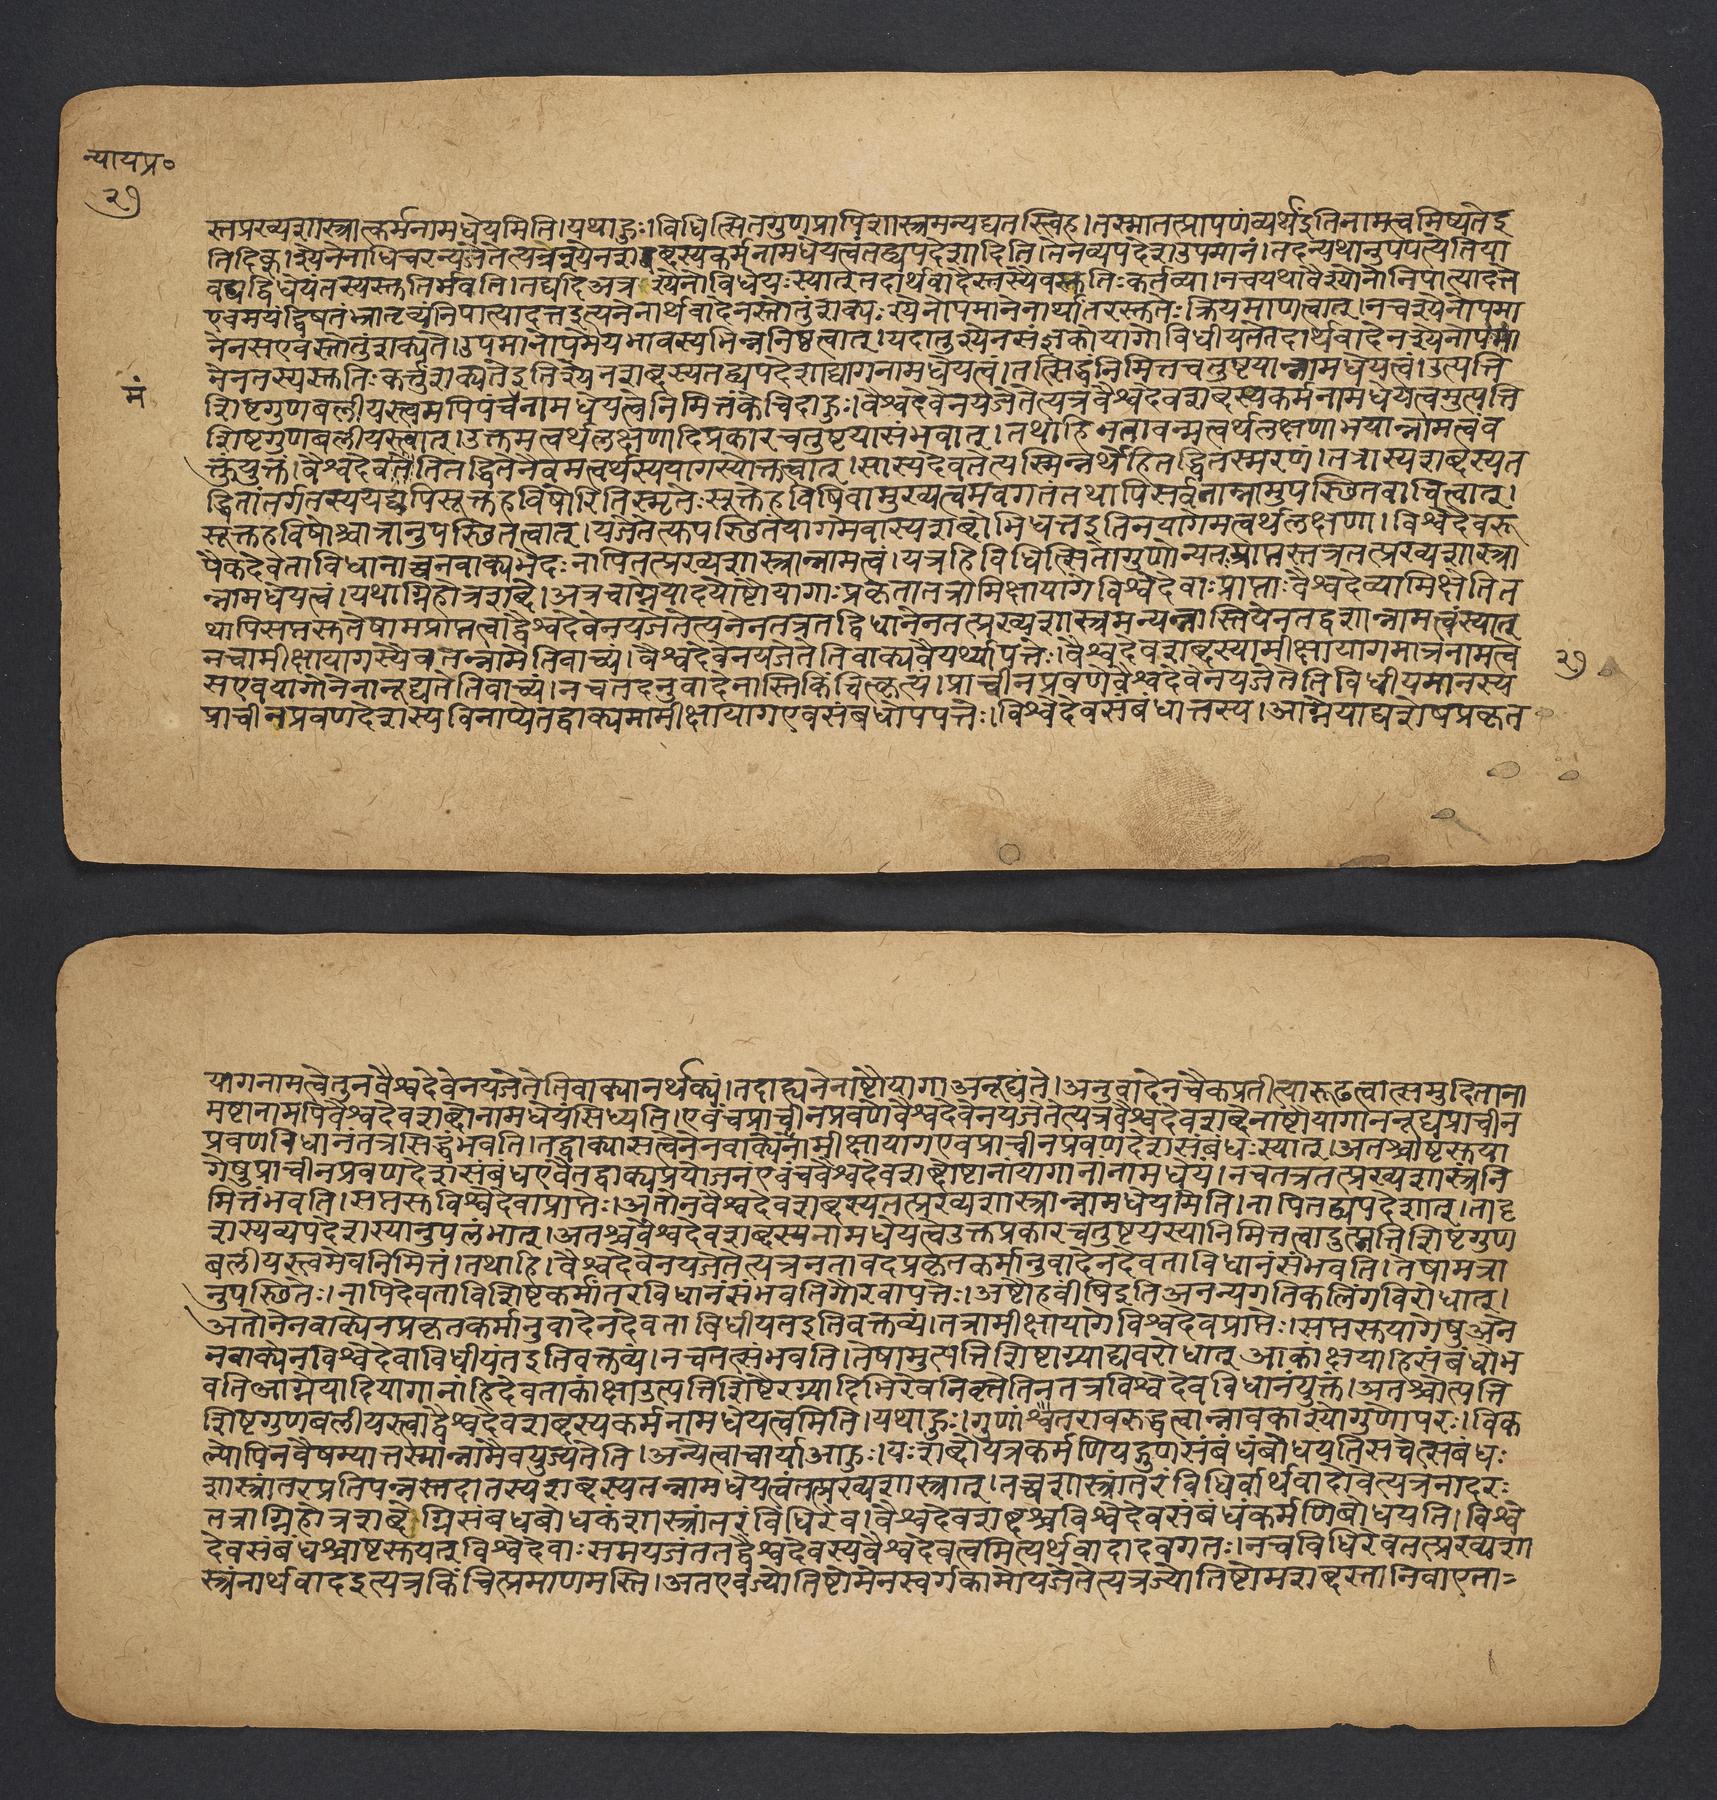 न्यायप्र॰
२७
स्तप्रख्यशास्त्रात्कर्मनामधेयमिति।यथाहुः।विधित्सितगुणप्रापिशास्त्रमन्यद्यतस्त्विह।तस्मात्तत्प्रापणंव्यर्थइतिनामत्वमिष्यतेइ
तिदिक्।श्येनेनाभिचरन्यजेतेत्यत्रश्येनशब्दस्यकर्मनामधेयत्वंतद्व्यपदेशादिति।तेनव्यपदेशउपमानं।तदन्यथानुपपत्येतिया
वद्यद्विधेयंतस्यस्तुतिर्भवति।तद्यदिअत्र श्येनोविधेयःस्यात्तदार्थवादैस्तस्यैवस्तुतिःकर्तव्या।नचयथावैश्येनोनिपात्यादत्ते
एवमयंद्विषंतंभ्रातृव्यंनिपात्यादत्तइत्यनेनार्थवादेनस्तोतुंशक्यःश्येनोपमानेनार्थांतरस्तुतेःक्रियमाणत्वात्।नचश्येनोपमा
नेनसएवस्तोतुंशक्यते।उपमानोपमेयभावस्यभिन्ननिष्ठत्वात्।यदातुश्येनसंज्ञकोयागोविधीयतेतदार्थवादेनश्येनोपमा
नेनतस्यस्तुतिःकर्त्तुंशक्यतेइतिश्येनशब्दस्यतद्व्यपदेशाद्यागनामधेयत्वं।तत्सिद्धंनिमित्तचतुष्टयान्नामधेयत्वं।उत्पत्ति
मं
शिष्टगुणबलीयस्त्वमपिपंचनामधेयत्वेनिमित्तंकेचिदाहुः।वैश्वदेवेनयजेतेत्यत्रवैश्वदेवशब्दस्यकर्मनामधेयत्वमुत्पत्ति
शिष्टगुणबलीयस्त्वात्।उक्तमत्वर्थलक्षणादिप्रकारचतुष्टयासंभवात्।तथाहिनतावन्मत्वर्थलक्षणाभयान्नामत्वंव
क्तुंयुक्तं।वैश्वदेवतेतितद्धितेनैवमत्वर्थस्ययागस्योक्तत्वात्।सास्यदेवतेत्यस्मिन्नर्थेहितद्धितस्मरणं।तत्रास्यशब्दस्यत
द्धितांतर्गतस्ययद्यपिसूक्तहविषोरितिस्मृतेःसूक्तेहविषिवामुख्यत्वमवगतंतथापिसर्वनाम्नामुपस्थितवाचित्वात्।
सूक्तहविषोश्चात्रानुपस्थितत्वात्।यजेतेत्युपस्थितंयागमेवास्यशब्दोभिधत्तइतिनयागेमत्वर्थलक्षणा।विश्वेदेवरू
पैकदेवताविधानाच्चनवाक्यभेदःनापितत्प्रख्यशास्त्रान्नामत्वं।यत्रहिविधित्सितोगुणोन्यतःप्राप्तस्तत्रतत्प्रख्यशास्त्रा
न्नामधेयत्वं।यथाग्निहोत्रशब्दे।अत्रचाग्नेयादयोष्टौयागाःप्रकृतातत्रामिक्षायागेविश्वेदेवाःप्राप्ताःवैश्वदेव्यामिक्षेतित
थापिसप्तसुतेषामप्राप्तत्वाद्वैश्वदेवेनयजेतेत्यनेनतत्रतद्विधानेनतत्प्रख्यशास्त्रमन्यन्नास्तियेनतद्वशान्नामत्वंस्यात्
नचामीक्षायागस्यैवतन्नामेतिवाच्यं।वैश्वदेवेनयजेतेतिवाक्यवैयर्थ्यापत्तेः।वैश्वदेवशब्दस्यामीक्षायागमात्रनामत्वे
२७
सएवयागोनेनानूद्यतेतिवाच्यं।नचतदनुवादेनास्तिकिंचित्कृत्यं।प्राचीनप्रवणेवैश्वदेवेनयजेतेतिविधीयमानस्य
प्राचीनप्रवणदेशस्यविनाप्येतद्वाक्यमामीक्षायागएवसंबंधोपपत्तेः।विश्वेदेवसंबंधात्तस्य।आग्नेयाद्यशेषप्रकृत
यागनामत्वेतुनवैश्वदेवेनयजेतेतिवाक्यानर्थक्यं।तदाह्यनेनाष्टौयागाअनूद्यंते।अनुवादेनचैकप्रतीत्यारूढत्वात्समुदिताना
मष्टानामपिवैश्वदेवशब्दोनामधेयंसिध्यति।एवंचप्राचीनप्रवणेवैश्वदेवेनयजेतेत्यत्रवैश्वदेवशब्देनाष्टौयागाननूद्यप्राचीन
प्रवणविधानंतत्रसिद्धंभवति।तद्वाक्यासत्वेनेनवाक्येनामीक्षायागएवप्राचीनप्रवणदेशसंबंधःस्यात्।अतश्चाष्टस्तया
गेषुप्राचीनप्रवणदेशसंबंधएवैतद्वाक्यप्रयोजनंएवंचवैश्वदेवशब्दोष्टानांयागानांनामधेयं।नचतत्रतत्प्रख्यशास्त्रंनि
मित्तंभवति।सप्तसुविश्वेदेवाप्राप्तेः।अतोनवैश्वदेवशब्दस्यतत्प्रख्यशास्त्रान्नामधेयमिति।नापितद्व्यपदेशात्।तादृ
शस्यव्यपदेशस्यानुपलंभात्।अतश्चवैश्वदेवशब्दस्यनामधेयत्वेउक्तप्रकारचतुष्टयस्यानिमित्तत्वादुत्पत्तिशिष्टगुण
बलीयस्त्वमेवनिमित्तं।तथाहि।वैश्वदेवेनयजेतेत्यत्रनतावदप्रकृतकर्मानुवादेनदेवताविधानंसंभवति।तेषामत्रा
नुपस्थितेः।नापिदेवताविशिष्टकर्मांतरविधानंसंभवतिगौरवापत्तेः।अष्टौहवींषिइतिअनन्यगतिकलिंगविरोधात्।
अतोनेनवाक्येनप्रकृतकर्मानुवादेनदेवताविधीयतइतिवक्तव्यं।तत्रामीक्षायागेविश्वेदेवप्राप्तेः।सप्तसुयागेषुअने
नवाक्येनविश्वेदेवाविधीयंतइतिवक्तव्यं।नचतत्संभवति।तेषामुत्पत्तिशिष्टाग्न्याद्यवरोधात्आकांक्षयाहिसंबंधोभ
वतिआग्नेयादियागानांहिदेवताकांक्षाउत्पत्तिशिष्टैरग्न्यादिभिरेवनिवृत्तेतिनतत्रविश्वेदेवविधानंयुक्तं।अतश्चोत्पत्ति
शिष्टगुणबलीयस्त्वाद्वैश्वदेवशब्दस्यकर्मनामधेयत्वमिति।यथाहुः।गुणांतरावरुद्धत्वान्नावकाश्योगुणोपरः।विक
ल्पोपिनवैषम्यात्तस्मान्नामैवयुज्यतेति।अन्येत्वाचार्याआहुः।यःशब्दोयत्रकर्मणियद्गुणसंबंधंबोधयतिसचेत्संबंधः
शास्त्रांतरप्रतिपन्नस्तदातस्यशब्दस्यतन्नामधेयत्वंतत्प्रख्यशास्त्रात्।तच्चशास्त्रांतरंविधिर्वार्थवादोवेत्यत्रनादरः
तत्राग्निहोत्रशब्देग्निसंबंधबोधकंशास्त्रांतरंविधिरेव।वैश्वदेवशब्दश्चविश्वेदेवसंबंधंकर्मणिबोधयति।विश्वे
देवसंबंधश्चाष्टस्तयत्विश्वेदेवाःसमयजंततद्वैश्वदेवस्यवैश्वदेवत्वमित्यर्थवादादवगतः।नचविधिरेवतत्प्रख्यशा
स्त्रंनार्थवादइत्यत्रकिंचित्प्रमाणमस्ति।अतएवज्योतिष्टोमेनस्वर्गकामोयजेतेत्यत्रज्योतिष्टोमशब्दस्तानिवाएता-